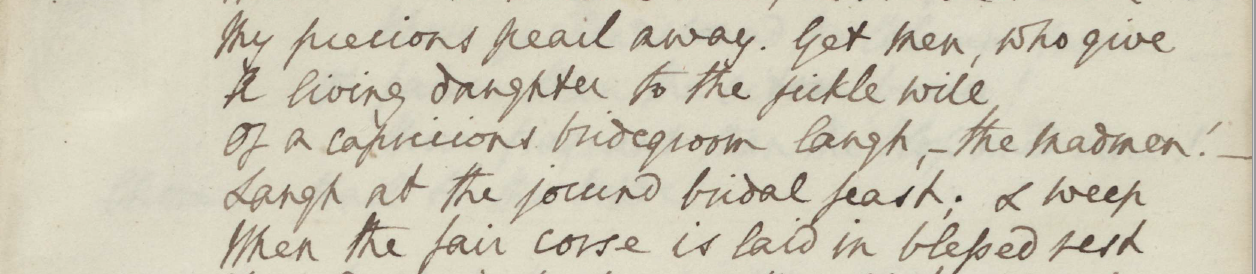 My precious pearl away. Yet men, who give
A living daughter to the fickle will
Of a capricious bridegroom laugh,—the madmen!—
Laugh at the jocund bridal feast; & weep
When the fair corse is laid in blessed rest